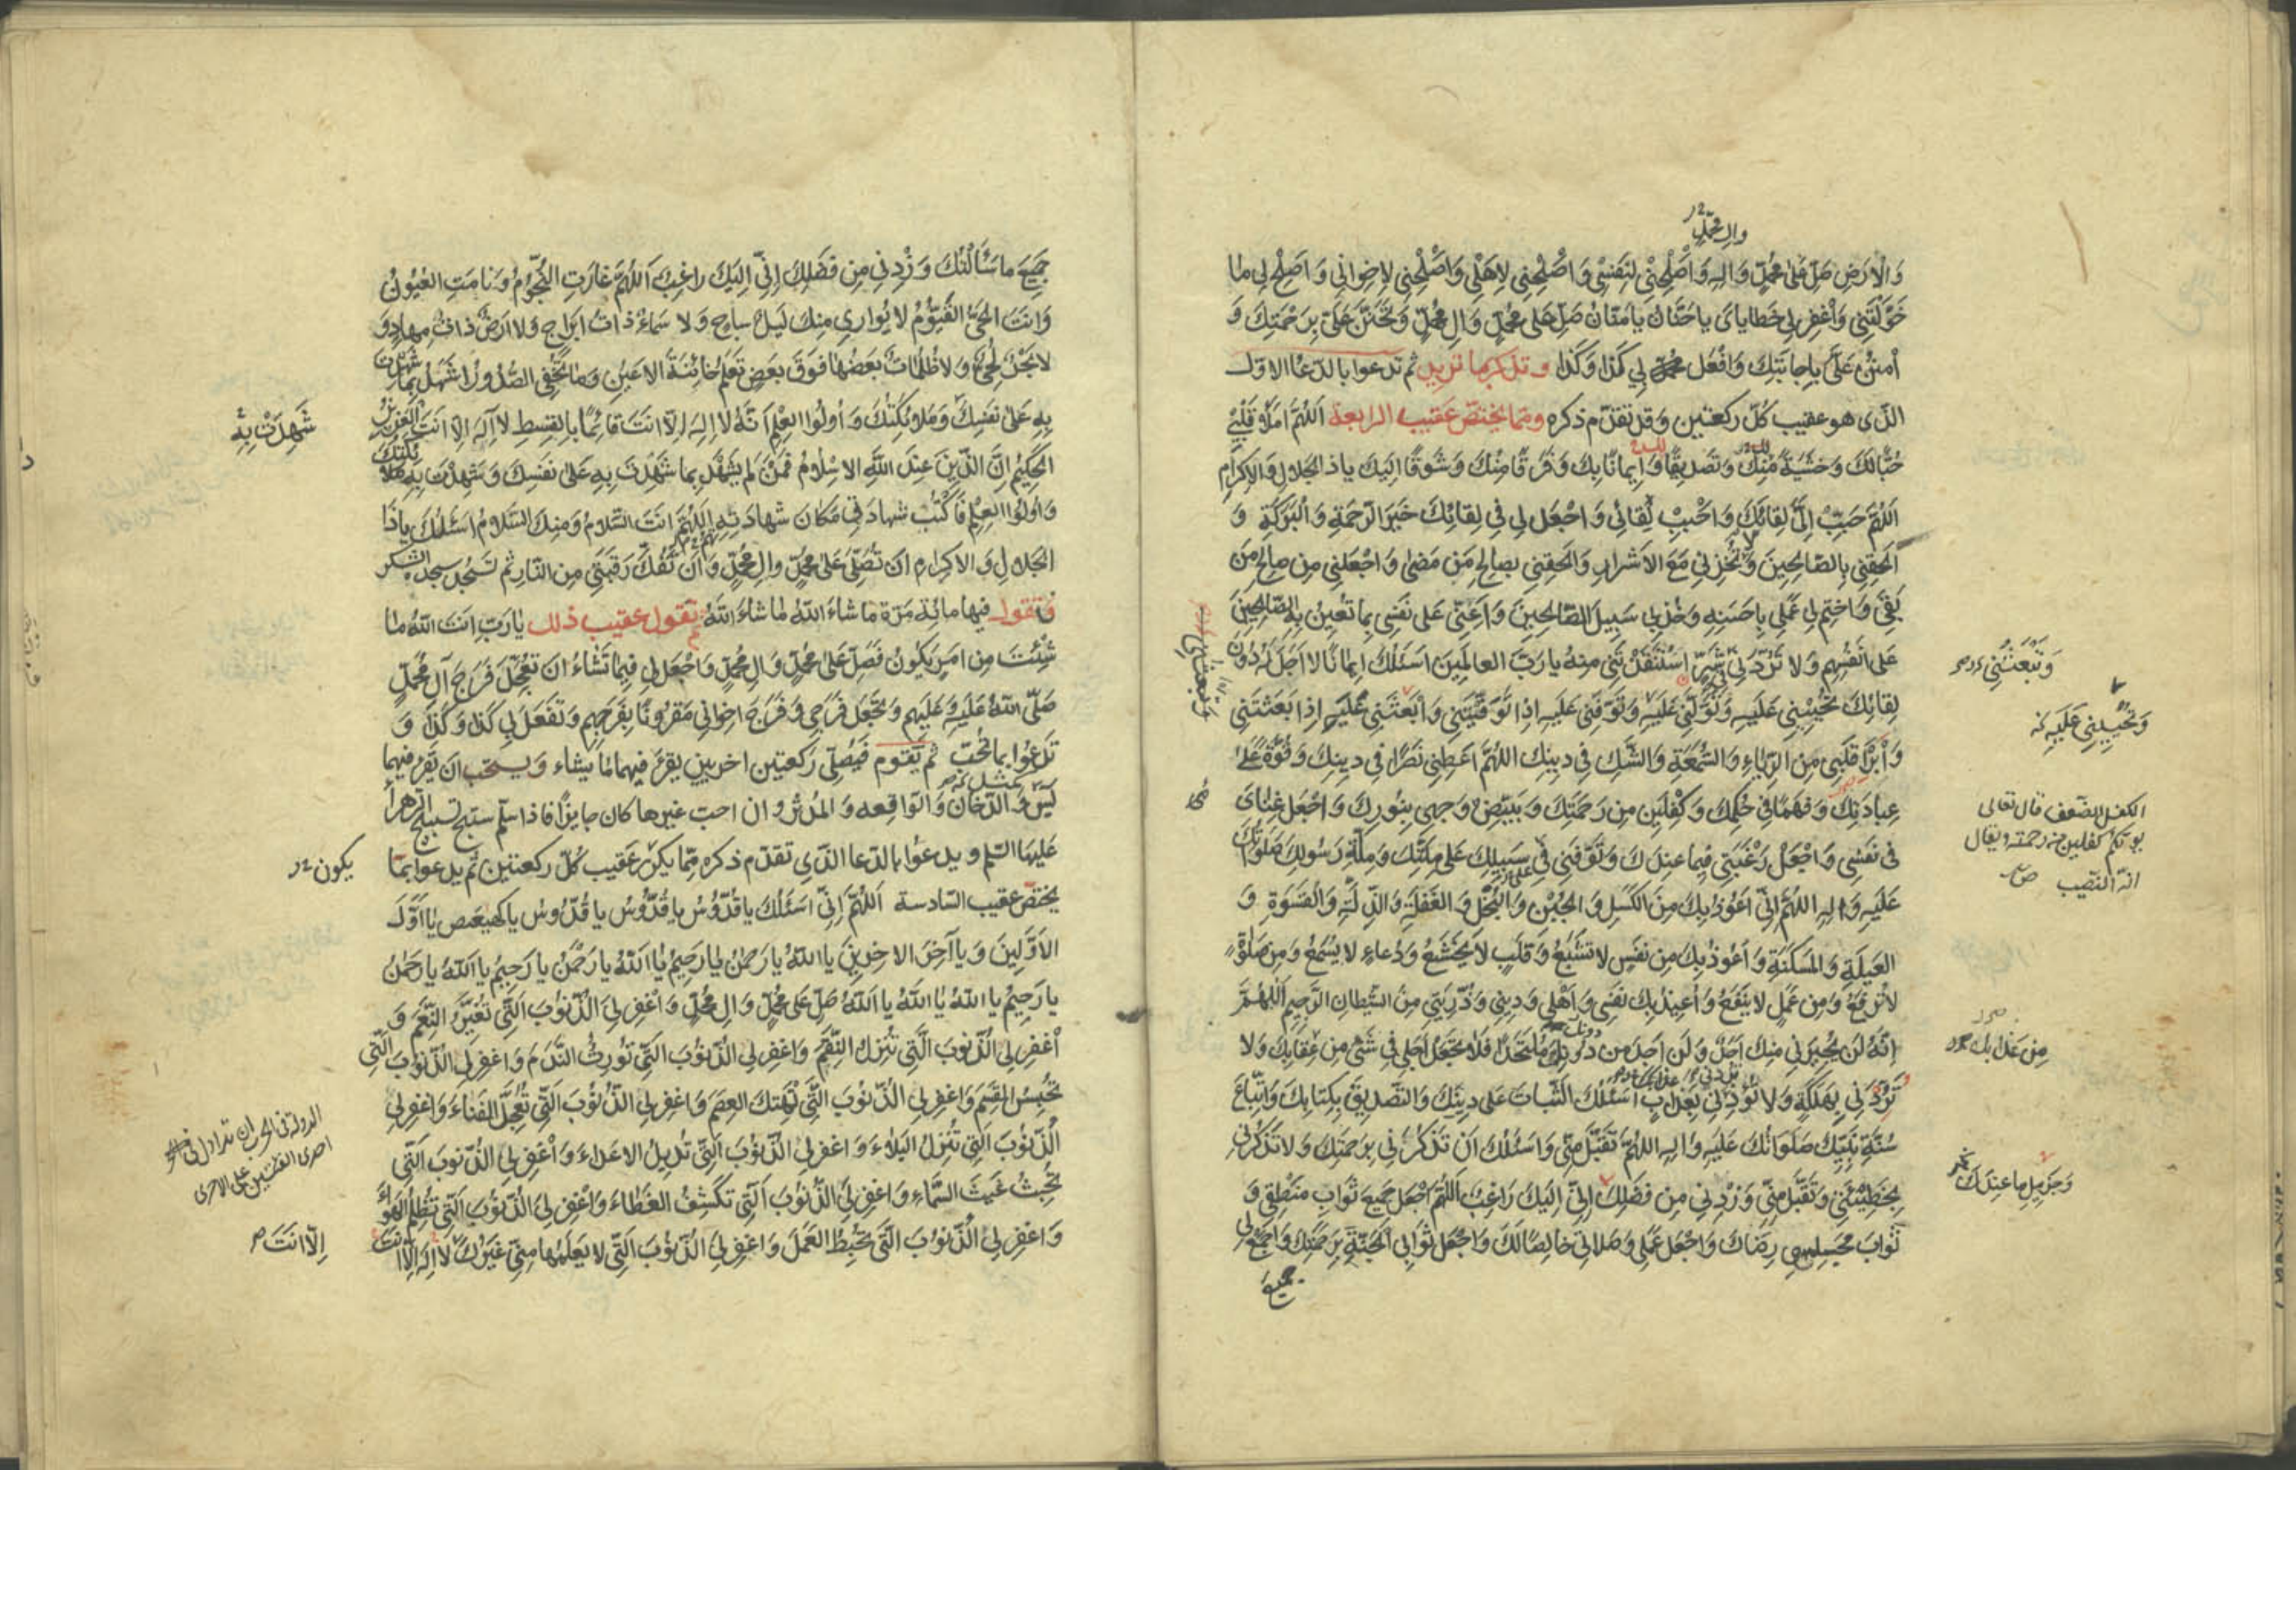 وال محمد
وَالْاَرْضِ صَلِّ عَلٰى مُحَمَّدٍ وَالِهِ وَاَصْلِحْنِي لِنَفْسِي وَاَصْلِحْنِي لِاَهْلِي وَاَصْلِحْنِي لِاِخْوَانِي وَاَصْلِحْ لِي مٰا
خَوَّلْتَنِي وَاغْفِرْ لِي خَطٰايٰايَ يٰا حَنّٰانُ يٰا مَنّٰانُ صَلِّ عَلٰى مُحَمَّدٍ وَالِ مُحَمَّدٍ وَتَحَنَّنْ عَلَيَّ بِرَحْمَتِكَ وَ
اُمْنُنْ عَلَيَّ بِاِجٰابَتِكَ وَافْعَلْ بِي كَذٰا وَكَذٰا وتذكر ما تريد ثم تدعوا بالدعا الاول
الذى هو عقيب كل ركعتين وقد تقدم ذكره ومما يختص عقيب الرابعة اَللّٰهُمَّ امْلَأْ قَلْبِي
حُبًّا لَكَ وَخَشْيَةً مِنْكَ وَتَصْدِيقًا وَاِيمٰانًا بِكَ وَفَرَقًا مِنْكَ وَشَوْقًا اِلَيْكَ يٰا ذَا الْجَلٰالِ وَالْاِكْرٰامِ
اَللّٰهُمَّ حَبِّبْ اِلَيَّ لِقٰائَكَ وَاَحْبِبْ لِقٰائِي وَاجْعَلْ لِي فِي لِقٰائِكَ خَيْرَ الرَّحْمَةِ وَالْبَرَكَةِ وَ
اَلْحِقْنِي بِالصّٰالِحِينَ وَلٰا تُخْزِنِي مَعَ الْاَشْرٰارِ وَاَلْحِقْنِي بِصٰالِحِ مَنْ مَضٰى وَاجْعَلْنِي مِنْ صٰالِحِ مَنْ
بَقِيَ وَاخْتِمْ لِي عَمَلِي بِاَحْسَنِهِ وَخُذْ بِي سَبِيلَ الصّٰالِحِينَ وَاَعِنِّي عَلٰى نَفْسِي بِمٰا تُعِينُ بِهِ الصّٰالِحِينَ
عَلٰى اَنْفُسِهِمْ وَلٰا تَرُدَّنِي فِي شَرٍّ اسْتَنْقَذْتَنِي مِنْهُ يٰا رَبَّ الْعٰالَمِينَ اَسْئَلُكَ اِيمٰانًا لٰا اَجَلَ لَهُ دُونَ
وَتَبْعَثُنِي
لِقٰائِكَ تُحْيِينِي عَلَيْهِ وَتَوَلَّنِي عَلَيْهِ وَتَوَفَّنِي عَلَيْهِ اِذٰا تَوَفَّيْتَنِي وَابْعَثْنِي عَلَيْهِ اِذٰا بَعَثْتَنِي
وَتُحْيِينِي عَلَيْهِ
وَاَبْرِأْ قَلْبِي مِنَ الرِّيٰاءِ وَالسُّمْعَةِ وَالشَّكِّ فِي دِينِكَ اَللّٰهُمَّ اَعْطِنِي نَصْرًا فِي دِينِكَ وَقُوَّةً عَلٰى
عِبٰادَتِكَ وَفَهْمًا فِي حُكْمِكَ وَكِفْلَيْنِ مِنْ رَحْمَتِكَ وَبَيِّضْ وَجْهِي بِنُورِكَ وَاجْعَلْ غِنٰايَ
الكفل الضعف قال تعالى
يؤتكم كفلين من رحمته ويقال
انه النصيب
فِي نَفْسِي وَاجْعَلْ رَغْبَتِي فِيمٰا عِنْدَكَ وَتَوَفَّنِي فِي سَبِيلِكَ عَلٰى مِلَّتِكَ وَمِلَّةِ رَسُولِكَ صَلَوٰاتُكَ
عَلَيْهِ وَالِهِ اَللّٰهُمَّ اِنِّي اَعُوذُ بِكَ مِنَ الْكَسَلِ وَالْجُبْنِ وَالْبُخْلِ وَالْغَفْلَةِ وَالذِّلَّةِ وَالْقَسْوَةِ وَ
الْعَيْلَةِ وَالْمَسْكَنَةِ وَاَعُوذُ بِكَ مِنْ نَفْسٍ لٰا تَشْبَعُ وَقَلْبٍ لٰا يَخْشَعُ وَدُعٰاءٍ لٰا يُسْمَعُ وَمِنْ صَلٰوةٍ
لٰا تُرْفَعُ وَمِنْ عَمَلٍ لٰا يَنْفَعُ وَاُعِيذُ بِكَ نَفْسِي وَاَهْلِي وَدِينِي وَذُرِّيَّتِي مِنَ الشَّيْطٰانِ الرَّجِيمِ اَللّٰهُمَّ
اِنَّهُ لَنْ يُجِيرَنِي مِنْكَ اَحَدٌ وَلَنْ اَجِدَ مِنْ دُونِكَ مُلْتَحَدًا فَلٰا تَجْعَلْ اَجَلِي فِي شَيْءٍ مِنْ عِقٰابِكَ وَلٰا
مِنْ عَذٰابِكَ
تَرُدَّنِي بِهَلَكَةٍ وَلٰا تَرُدَّنِي بِعَذٰابٍ اَسْئَلُكَ الثَّبٰاتَ عَلٰى دِينِكَ وَالتَّصْدِيقَ بِكِتٰابِكَ وَاتِّبٰاعَ
سُنَّةِ نَبِيِّكَ صَلَوٰاتُكَ عَلَيْهِ وَالِهِ اَللّٰهُمَّ تَقَبَّلْ مِنِّي وَاَسْئَلُكَ اَنْ تَذْكُرَنِي بِرَحْمَتِكَ وَلٰا تَذْكُرَنِي
بِخَطِيئَتِي وَتَقَبَّلْ مِنِّي وَزِدْنِي مِنْ فَضْلِكَ اِنِّي اِلَيْكَ رٰاغِبٌ اَللّٰهُمَّ اجْعَلْ جَمِيعَ ثَوٰابِ مَنْطِقِي وَ
وَجَزِيلِ مٰا عِنْدَكَ
ثَوٰابَ مَجْلِسِي رِضٰاكَ وَاجْعَلْ عَمَلِي وَصَلٰاتِي خٰالِصًا لَكَ وَاجْعَلْ ثَوٰابِي الْجَنَّةَ بِرَحْمَتِكَ وَاجْمَعْ لِي
جميع
جَمِيعَ مٰا سَأَلْتُكَ وَزِدْنِي مِنْ فَضْلِكَ اِنِّي اِلَيْكَ رٰاغِبٌ اَللّٰهُمَّ غٰارَتِ النُّجُومُ وَنٰامَتِ الْعُيُونُ
وَاَنْتَ الْحَيُّ الْقَيُّومُ لٰا يُوٰارِي مِنْكَ لَيْلٌ سٰاجٍ وَلٰا سَمٰاءٌ ذٰاتُ اَبْرٰاجٍ وَلٰا اَرْضٌ ذٰاتُ مِهٰادٍ وَ
لٰا بَحْرٌ لُجِّيٌّ وَلٰا ظُلُمٰاتٌ بَعْضُهٰا فَوْقَ بَعْضٍ تَعْلَمُ خٰائِنَةَ الْاَعْيُنِ وَمٰا تُخْفِي الصُّدُورُ اَشْهَدُ بِمٰا شَهِدْتَ
بِهِ عَلٰى نَفْسِكَ وَمَلٰائِكَتُكَ وَاُولُوا الْعِلْمِ اَنَّهُ لٰا اِلٰهَ اِلّٰا اَنْتَ قٰائِمًا بِالْقِسْطِ لٰا اِلٰهَ اِلّٰا اَنْتَ الْعَزِيزُ
شَهِدَتْ بِهِ
الْحَكِيمُ اِنَّ الدِّينَ عِنْدَ اللّٰهِ الْاِسْلٰامُ فَمَنْ لَمْ يَشْهَدْ بِمٰا شَهِدْتَ بِهِ عَلٰى نَفْسِكَ وَشَهِدَتْ بِهِ مَلٰائِكَتُكَ
وَاُولُوا الْعِلْمِ فَاكْتُبْ شَهٰادَتِي مَكٰانَ شَهٰادَتِهِ اَللّٰهُمَّ اَنْتَ السَّلٰامُ وَمِنْكَ السَّلٰامُ اَسْئَلُكَ يٰا ذَا
الْجَلٰالِ وَالْاِكْرٰامِ اَنْ تُصَلِّيَ عَلٰى مُحَمَّدٍ وَالِ مُحَمَّدٍ وَاَنْ تَفُكَّ رَقَبَتِي مِنَ النّٰارِ ثم تسجد سجدة الشكر
وتقول فيها مائة مرة مٰا شٰاءَ اللّٰهُ مٰا شٰاءَ اللّٰهُ ثم تقول عقيب ذلك يٰا رَبِّ اَنْتَ اللّٰهُ مٰا
شِئْتَ مِنْ اَمْرٍ يَكُونُ فَصَلِّ عَلٰى مُحَمَّدٍ وَالِ مُحَمَّدٍ وَاجْعَلْ لِي فِيمٰا تَشٰاءُ اَنْ تُعَجِّلَ فَرَجَ اٰلِ مُحَمَّدٍ
صَلَّى اللّٰهُ عَلَيْهِ وَعَلَيْهِمْ وَتَجْعَلَ فَرَجِي وَفَرَجَ اِخْوٰانِي مَقْرُونًا بِفَرَجِهِمْ وَتَفْعَلَ بِي كَذٰا وَكَذٰا وَ
تدعوا بما تحب ثم يقوم فيصلى ركعتين اخريين يقرء فيهما ما يشاء ويستحب ان يقرء فيهما
مثل
يس والدخان والواقعه والمدثر وان احب غيرها كان جايزا فاذا سلم سبح تسبيح الزهرا
عليها السلم ويدعوا بالدعا الذى تقدم ذكره مما يكرر عقيب كل ركعتين ثم يدعوا بما
يكون
يختص عقيب السادسة اَللّٰهُمَّ اِنِّي اَسْئَلُكَ يٰا قُدُّوسُ يٰا قُدُّوسُ يٰا قُدُّوسُ يٰا كهيعص يٰا اَوَّلَ
الْاَوَّلِينَ وَيٰا اٰخِرَ الْاٰخِرِينَ يٰا اَللّٰهُ يٰا رَحْمٰنُ يٰا رَحِيمُ يٰا اَللّٰهُ يٰا رَحْمٰنُ يٰا رَحِيمُ يٰا اَللّٰهُ يٰا رَحْمٰنُ
يٰا رَحِيمُ يٰا اَللّٰهُ يٰا اَللّٰهُ يٰا اَللّٰهُ صَلِّ عَلٰى مُحَمَّدٍ وَالِ مُحَمَّدٍ وَاغْفِرْ لِيَ الذُّنُوبَ الَّتِي تُغَيِّرُ النِّعَمَ وَ
اغْفِرْ لِي الذُّنُوبَ الَّتِي تُنْزِلُ النِّقَمَ وَاغْفِرْ لِي الذُّنُوبَ الَّتِي تُورِثُ النَّدَمَ وَاغْفِرْ لِي الذُّنُوبَ الَّتِي
تَحْبِسُ الْقِسَمَ وَاغْفِرْ لِي الذُّنُوبَ الَّتِي تَهْتِكُ الْعِصَمَ وَاغْفِرْ لِي الذُّنُوبَ الَّتِي تُعَجِّلُ الْفَنٰاءَ وَاغْفِرْ لِي
الدولة فى الحرب ان تدال
احدى الفئتين على الاخرى
الذُّنُوبَ الَّتِي تُنْزِلُ الْبَلٰاءَ وَاغْفِرْ لِي الذُّنُوبَ الَّتِي تُدِيلُ الْاَعْدٰاءَ وَاغْفِرْ لِي الذُّنُوبَ الَّتِي
تَحْبِسُ غَيْثَ السَّمٰاءِ وَاغْفِرْ لِيَ الذُّنُوبَ الَّتِي تَكْشِفُ الْغِطٰاءَ وَاغْفِرْ لِيَ الذُّنُوبَ الَّتِي تُظْلِمُ الْهَوٰاءَ
وَاغْفِرْ لِيَ الذُّنُوبَ الَّتِي تُحْبِطُ الْعَمَلَ وَاغْفِرْ لِيَ الذُّنُوبَ الَّتِي لٰا يَعْلَمُهٰا مِنِّي غَيْرُكَ لٰا اِلٰهَ اِلّٰا اَنْتَ
اِلّٰا اَنْتَ